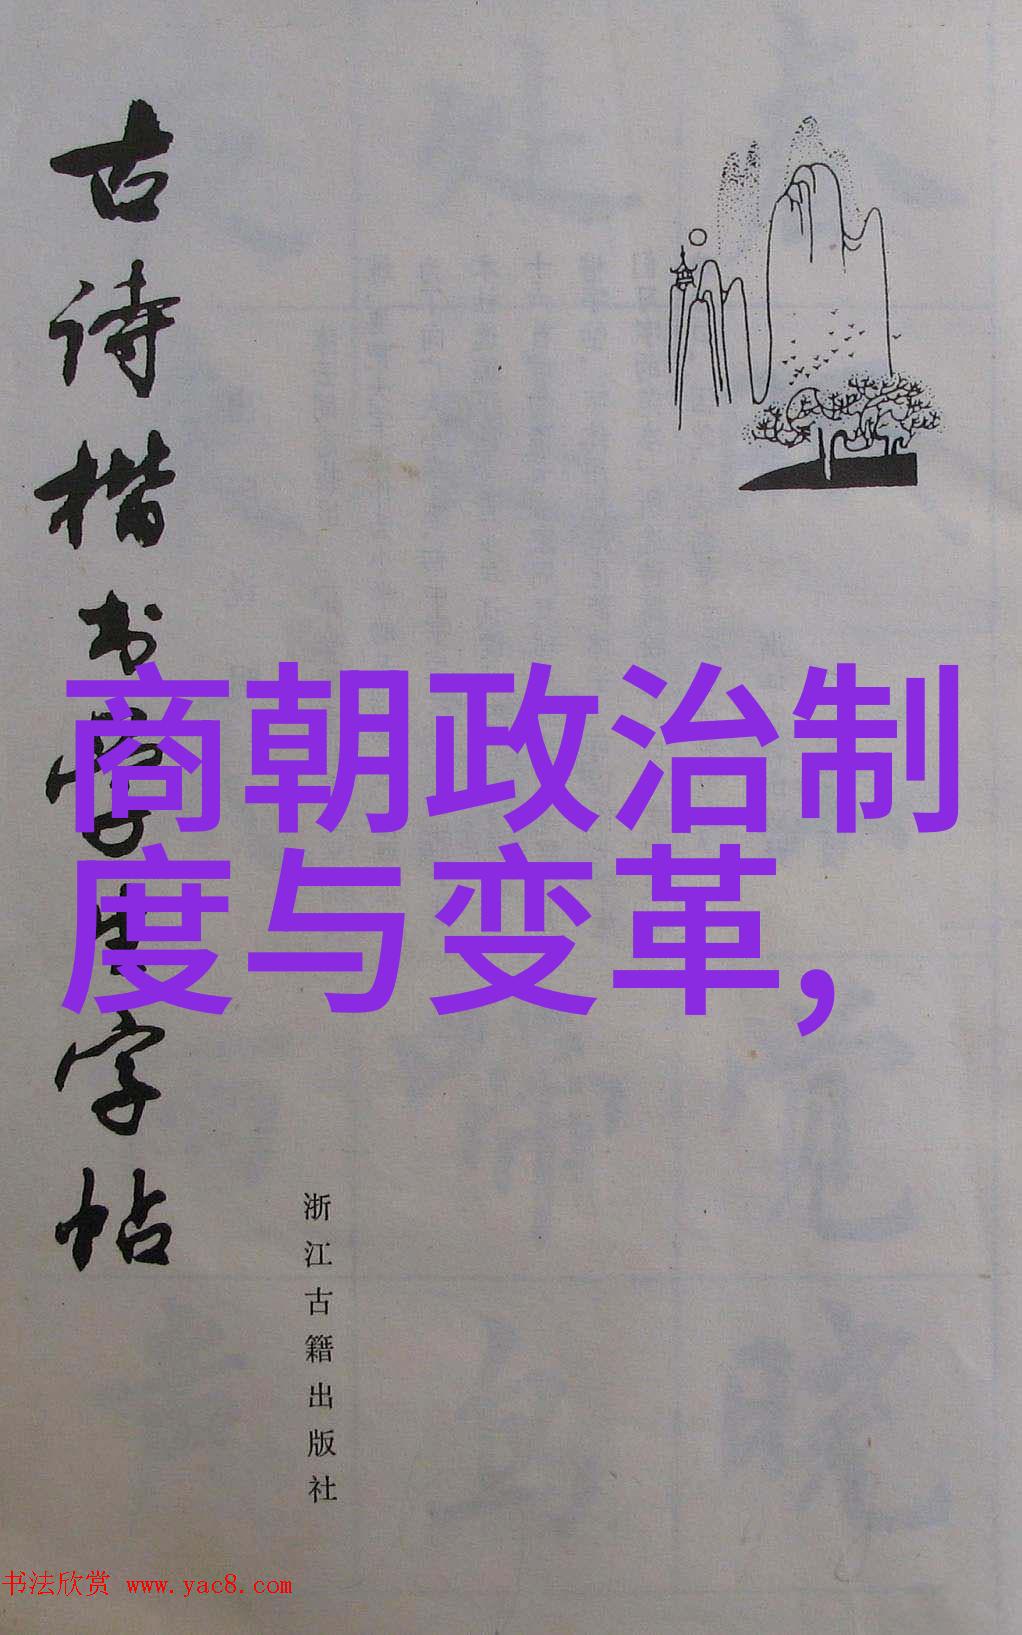 古诗楷书学生字帖
商朝政治制
度与变革,
浙江古籍出版社
书法欣赏 www.yac8.com